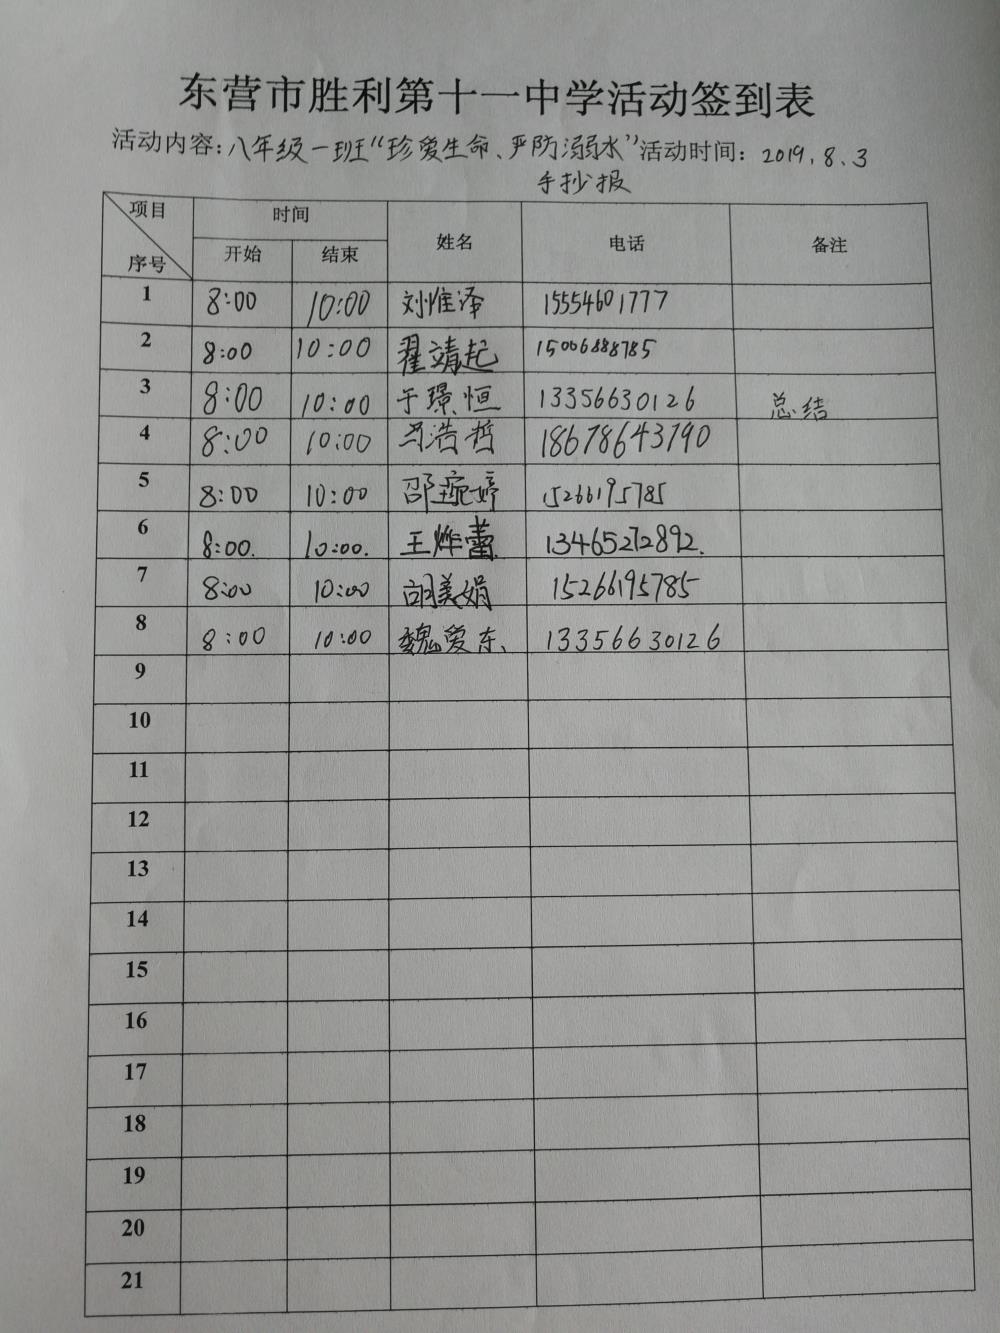 东营市胜利第十一中学活动签到表
活动内容:八年级一班“珍爱生命、严防溺水” 活动时间: 2019.8.3
手抄报
项目 时间 姓名 电话 备注
序号 开始 结束
1 8:00 10:00 刘惟泽 15554601777
2 8:00 10:00 翟靖起 15006888785
3 8:00 10:00 于璟恒 13356630126 总结
4 8:00 10:00 浩哲 18678643790
5 8:00 10:00 邵琬婷 15266195785
6 8:00. 10:00. 王烨蕾 13465272892.
7 8:00 10:00 胡美娟 15266195785
8 8:00 10:00 魏爱东、 13356630126
9
10
11
12
13
14
15
16
17
18
19
20
21